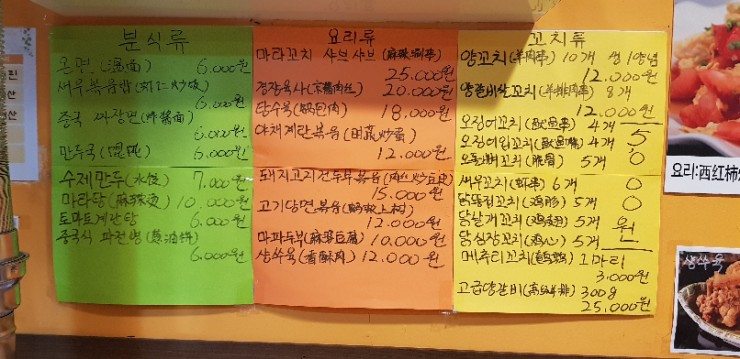 분식류
온면 (温面) 6.000원
새우볶음밥 (虾仁炒饭)
6.000원
중국 짜장면 (炸酱面)
6.000원
만두국 (馄饨) 6.000원
수제만두 (水饺) 7.000원
마라탕 (麻辣烫) 10.000원
토마토계란탕 6.000원
중국식 파전병 (葱油饼)
6.000원
요리류
마라꼬치 샤브샤브 (麻辣涮串)
25.000원
경장육사 (京酱肉丝) 20.000원
탕수육 (锅包肉) 18.000원
야채계란볶음 (蔬菜炒蛋)
12.000원
돼지고기건두부볶음 (肉丝炒豆皮)
15.000원
고기당면볶음 (蚂蚁上树)
12.000원
마파두부 (麻婆豆腐) 10.000원
생쑤육 (香酥肉) 12.000원
꼬치류
양꼬치 (羊肉串) 10개 생/양념
12.000원
양갈비살꼬치 (羊排肉串) 8개
12.000원
오징어꼬치 (鱿鱼串) 4개
오징어입꼬치 (鱿鱼嘴) 4개 5
꼬치 5개 0
새우꼬치 (虾串) 6개 0
닭똥집꼬치 (鸡胗) 5개 0
닭날개꼬치 (鸡翅) 5개 원
닭심장꼬치 (鸡心) 5개
메추리꼬치 (鹌鹑) 1마리
3.000원
고급양갈비 (高级羊排) 300g
25.000원
요리:西红柿
생쑤육